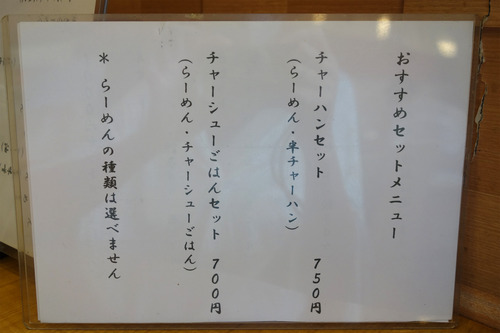 おすすめセットメニュー
チャーハンセット 750円
(らーめん・半チャーハン)
チャーシューごはんセット 700円
(らーめん・チャーシューごはん)
* らーめんの種類は選べません